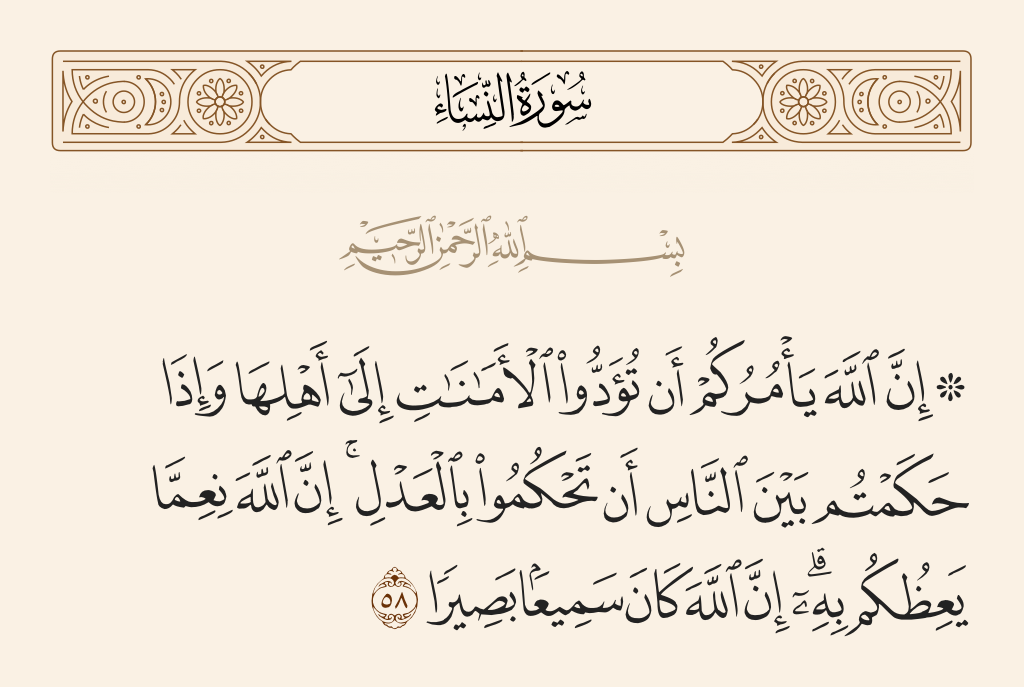 سُورَةُ النِّسَاءِ
بِسْمِ ٱللَّهِ ٱلرَّحْمَٰنِ ٱلرَّحِيمِ
۞ إِنَّ ٱللَّهَ يَأْمُرُكُمْ أَن تُؤَدُّوا۟ ٱلْأَمَـٰنَـٰتِ إِلَىٰٓ أَهْلِهَا وَإِذَا
حَكَمْتُم بَيْنَ ٱلنَّاسِ أَن تَحْكُمُوا۟ بِٱلْعَدْلِ ۚ إِنَّ ٱللَّهَ نِعِمَّا
يَعِظُكُم بِهِۦٓ ۗ إِنَّ ٱللَّهَ كَانَ سَمِيعًۢا بَصِيرًا ٥٨